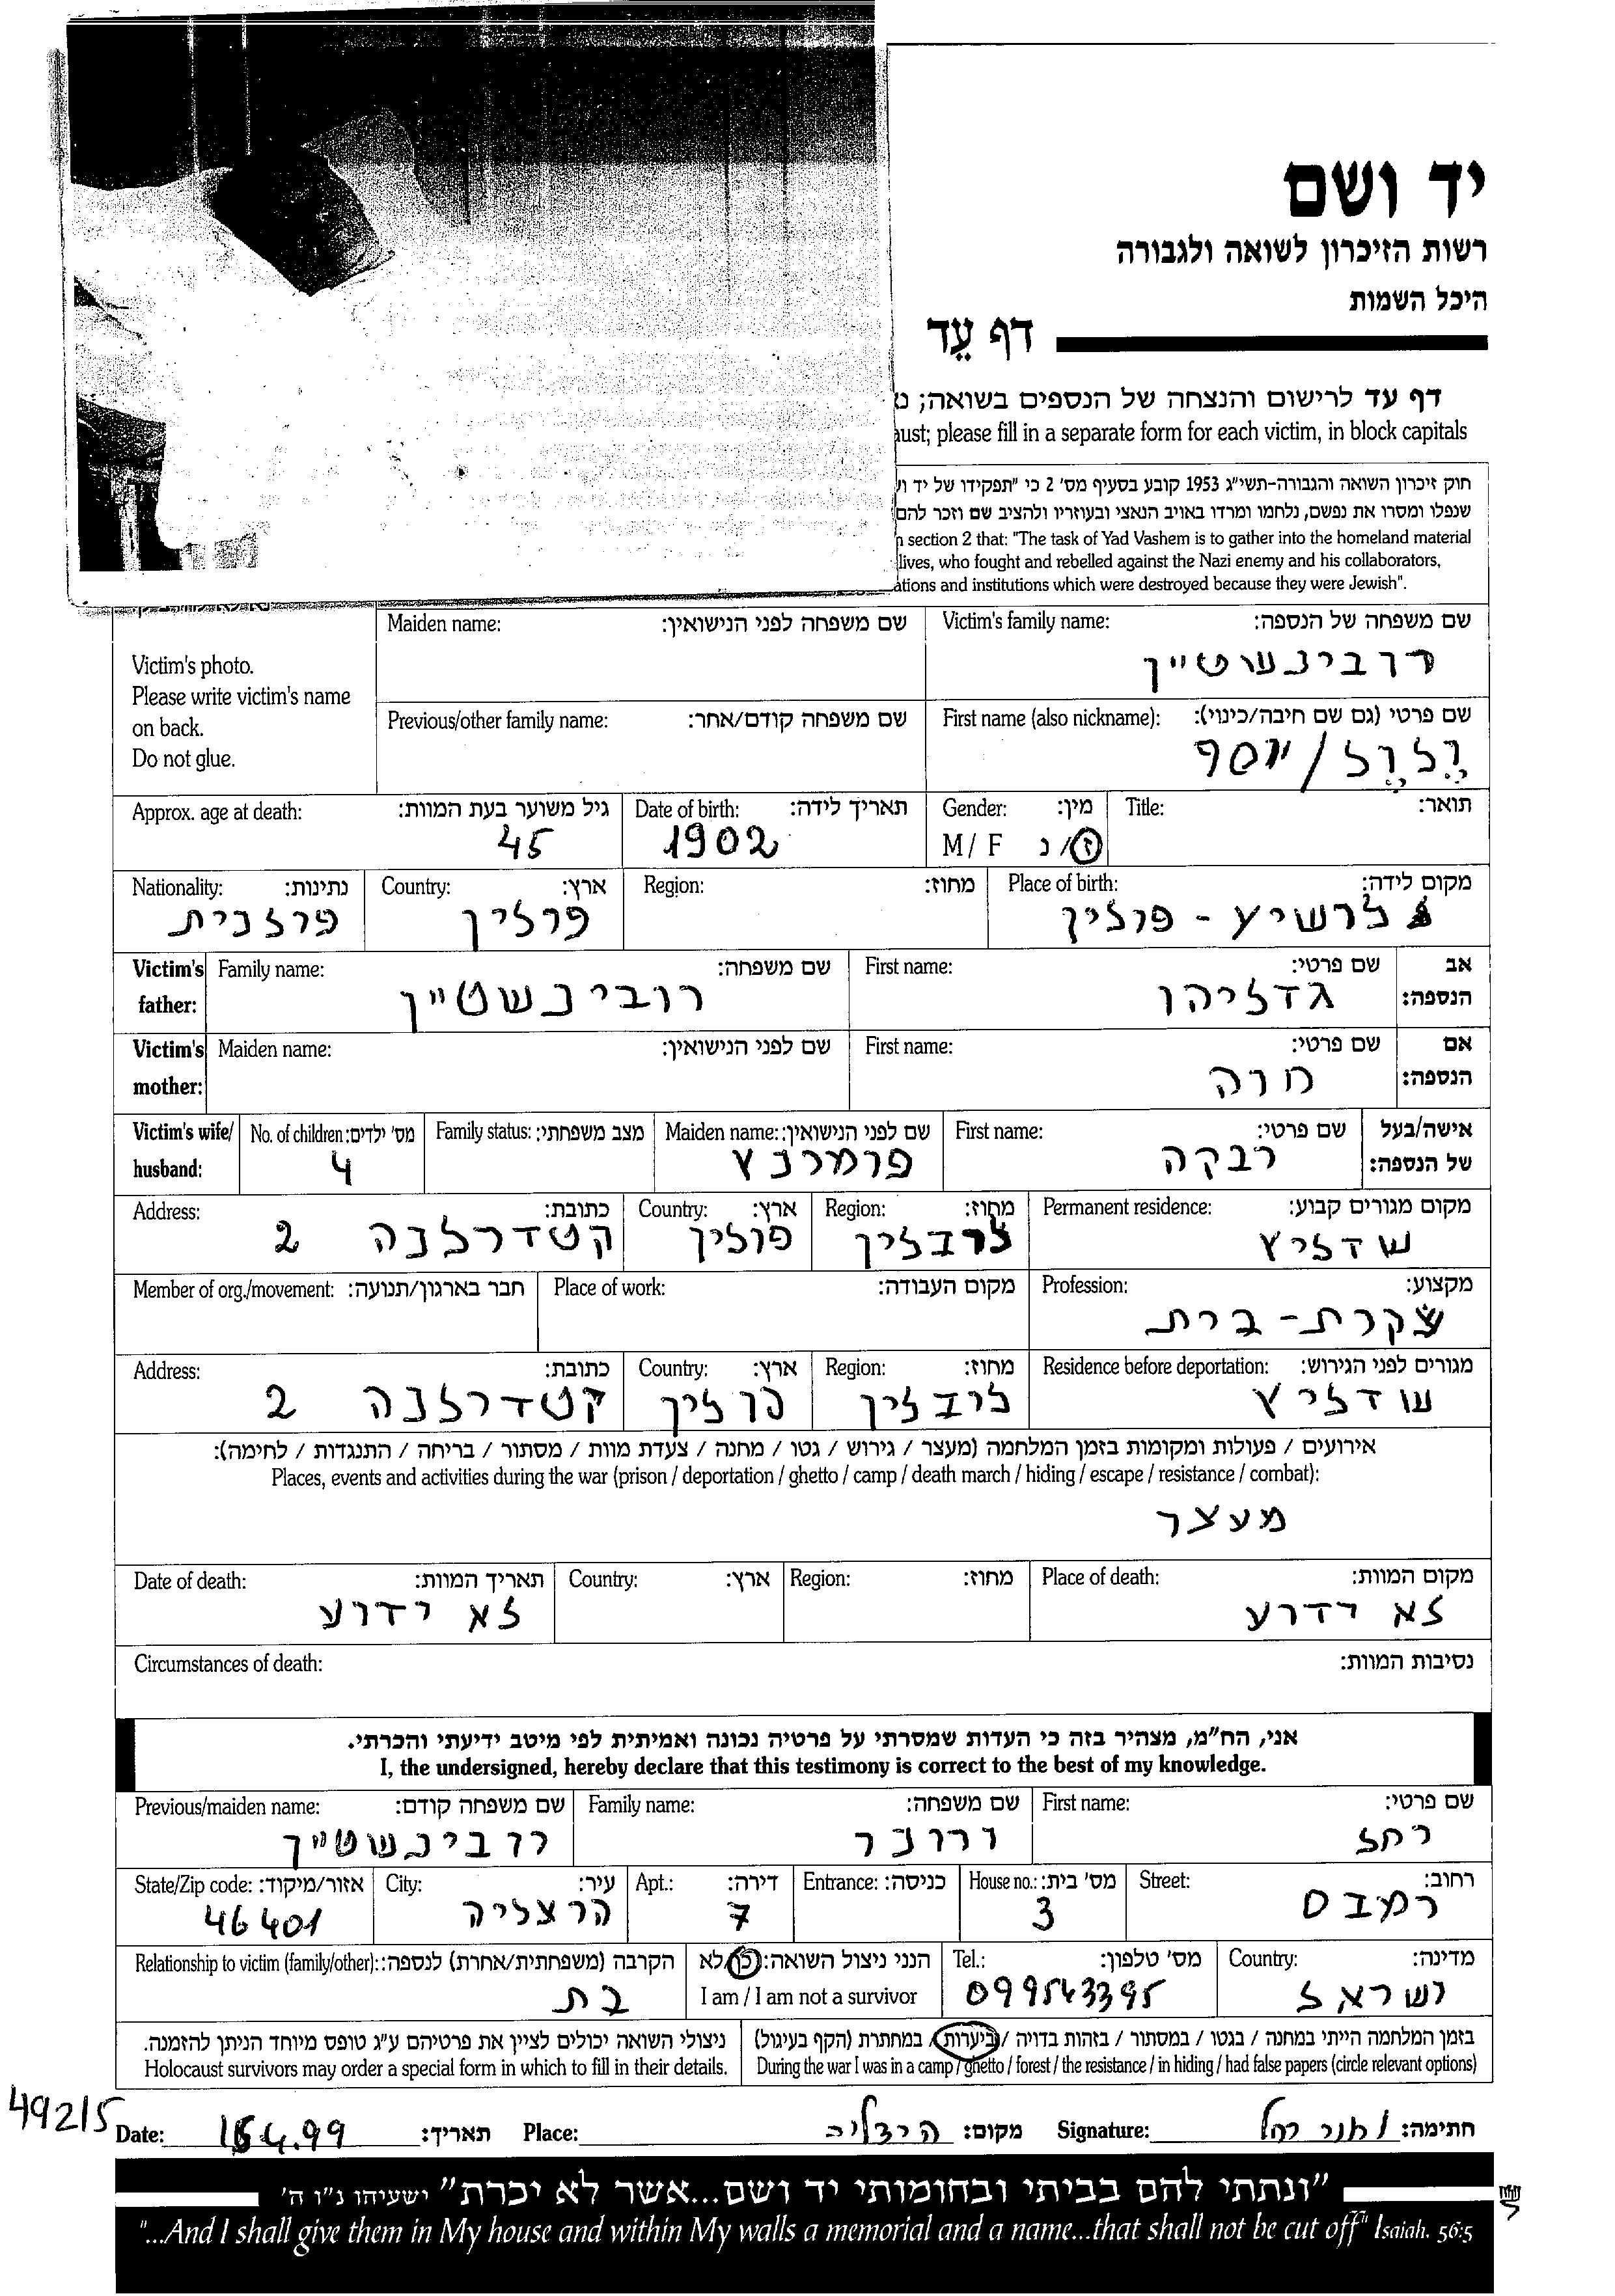 יד ושם
רשות הזיכרון לשואה ולגבורה
היכל השמות
דף עֵד
דף עד לרישום והנצחה של הנספים בשואה; נ
aust; please fill in a separate form for each victim, in block capitals
חוק זיכרון השואה והגבורה-תשי"ג 1953 קובע בסעיף מס' 2 כי "תפקידו של יד וש
שנפלו ומסרו את נפשם, נלחמו ומרדו באויב הנאצי ובעוזריו ולהציב שם וזכר להם
n section 2 that: "The task of Yad Vashem is to gather into the homeland material
lives, who fought and rebelled against the Nazi enemy and his collaborators,
ations and institutions which were destroyed because they were Jewish".
Victim's photo.
Please write victim's name
on back.
Do not glue.
Victim's family name: שם משפחה של הנספה:
רובינשטיין
Maiden name: שם משפחה לפני הנישואין:
First name (also nickname): שם פרטי (גם שם חיבה/כינוי):
יוסף
Previous/other family name: שם משפחה קודם/אחר:
Title: תואר:
Gender: מין:
M / F ז/נ
Date of birth: תאריך לידה:
1902
Approx. age at death: גיל משוער בעת המוות:
45
Place of birth: מקום לידה:
פולין
Region: מחוז:
Country: ארץ:
פולין
Nationality: נתינות:
פולנית
Victim's father: אב הנספה:
First name: שם פרטי:
גדליהו
Family name: שם משפחה:
רובינשטיין
Victim's mother: אם הנספה:
First name: שם פרטי:
חוה
Maiden name: שם לפני הנישואין:
Victim's wife/ husband: אישה/בעל של הנספה:
First name: שם פרטי:
רבקה
Maiden name: שם לפני הנישואין:
פומרנץ
Family status: מצב משפחתי:
No. of children: מס' ילדים:
4
Permanent residence: מקום מגורים קבוע:
שדליץ
Region: מחוז:
לובלין
Country: ארץ:
פולין
Address: כתובת:
קטדרלנה 2
Profession: מקצוע:
עקרת-בית
Place of work: מקום העבודה:
Member of org./movement: חבר בארגון/תנועה:
Residence before deportation: מגורים לפני הגירוש:
שדליץ
Region: מחוז:
לובלין
Country: ארץ:
פולין
Address: כתובת:
קטדרלנה 2
אירועים / פעולות ומקומות בזמן המלחמה (מעצר / גירוש / גטו / מחנה / צעדת מוות / מסתור / בריחה / התנגדות / לחימה):
Places, events and activities during the war (prison / deportation / ghetto / camp / death march / hiding / escape / resistance / combat):
מעצר
Place of death: מקום המוות:
לא ידוע
Region: מחוז:
Country: ארץ:
Date of death: תאריך המוות:
לא ידוע
Circumstances of death: נסיבות המוות:
אני, הח"מ, מצהיר בזה כי העדות שמסרתי על פרטיה נכונה ואמיתית לפי מיטב ידיעתי והכרתי.
I, the undersigned, hereby declare that this testimony is correct to the best of my knowledge.
First name: שם פרטי:
רחל
Family name: שם משפחה:
Previous/maiden name: שם משפחה קודם:
רובינשטיין
Street: רחוב:
רמבם
House no.: מס' בית:
3
Entrance: כניסה:
Apt.: דירה:
7
City: עיר:
הרצליה
State/Zip code: אזור/מיקוד:
46401
Country: מדינה:
ישראל
Tel.: מס' טלפון:
099543395
הנני ניצול השואה: כן/לא
I am / I am not a survivor
Relationship to victim (family/other): הקרבה (משפחתית/אחרת) לנספה:
בת
בזמן המלחמה הייתי במחנה / בגטו / במסתור / בזהות בדויה / ביערות / במחתרת (הקף בעיגול)
During the war I was in a camp / ghetto / forest / the resistance / in hiding / had false papers (circle relevant options)
ניצולי השואה יכולים לציין את פרטיהם ע"ג טופס מיוחד הניתן להזמנה.
Holocaust survivors may order a special form in which to fill in their details.
49215
Signature: חתימה:
Place: מקום: הרצליה
Date: תאריך:
"ונתתי להם בביתי ובחומותי יד ושם...אשר לא יכרת" ישעיהו נ"ו ה'
"...And I shall give them in My house and within My walls a memorial and a name...that shall not be cut off" Isaiah. 56:5